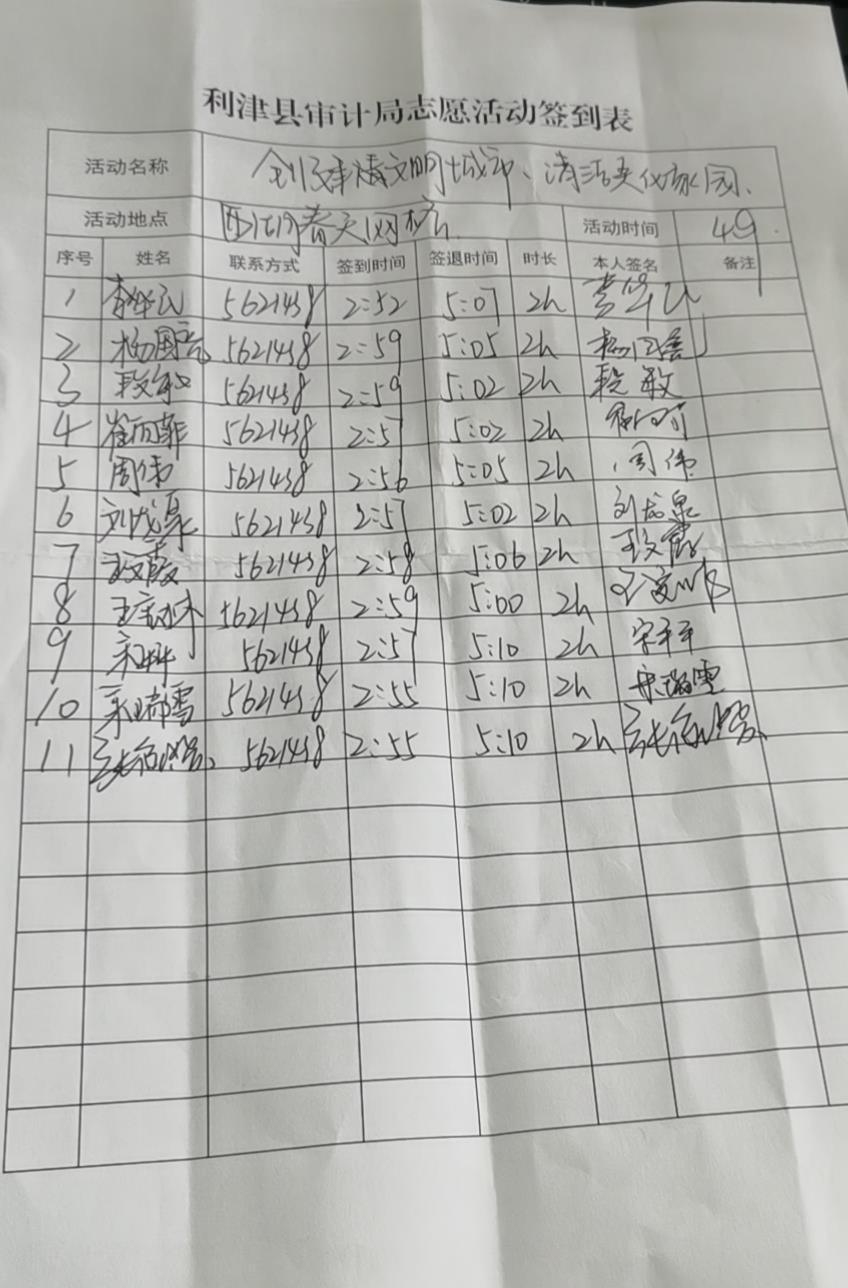 利津县审计局志愿活动签到表
活动名称 文明城市、清洁美化家园、
活动地点 春天网格 活动时间 4.9
序号 姓名 联系方式 签到时间 签退时间 时长 本人签名 备注
1 5621438 2:52 5:07 2h
2 5621438 2:59 5:05 2h
3 段敏 5621438 2:59 5:02 2h 段敏
4 崔雨菲 5621438 2:57 5:02 2h
5 周伟 5621438 2:56 5:05 2h 周伟
6 刘龙泉 5621438 2:57 5:02 2h 刘龙泉
7 5621438 2:58 5:06 2h
8 5621438 2:59 5:00 2h
9 5621438 2:57 5:10 2h
10 宋瑞雪 5621438 2:55 5:10 2h 宋瑞雪
11 5621438 2:55 5:10 2h